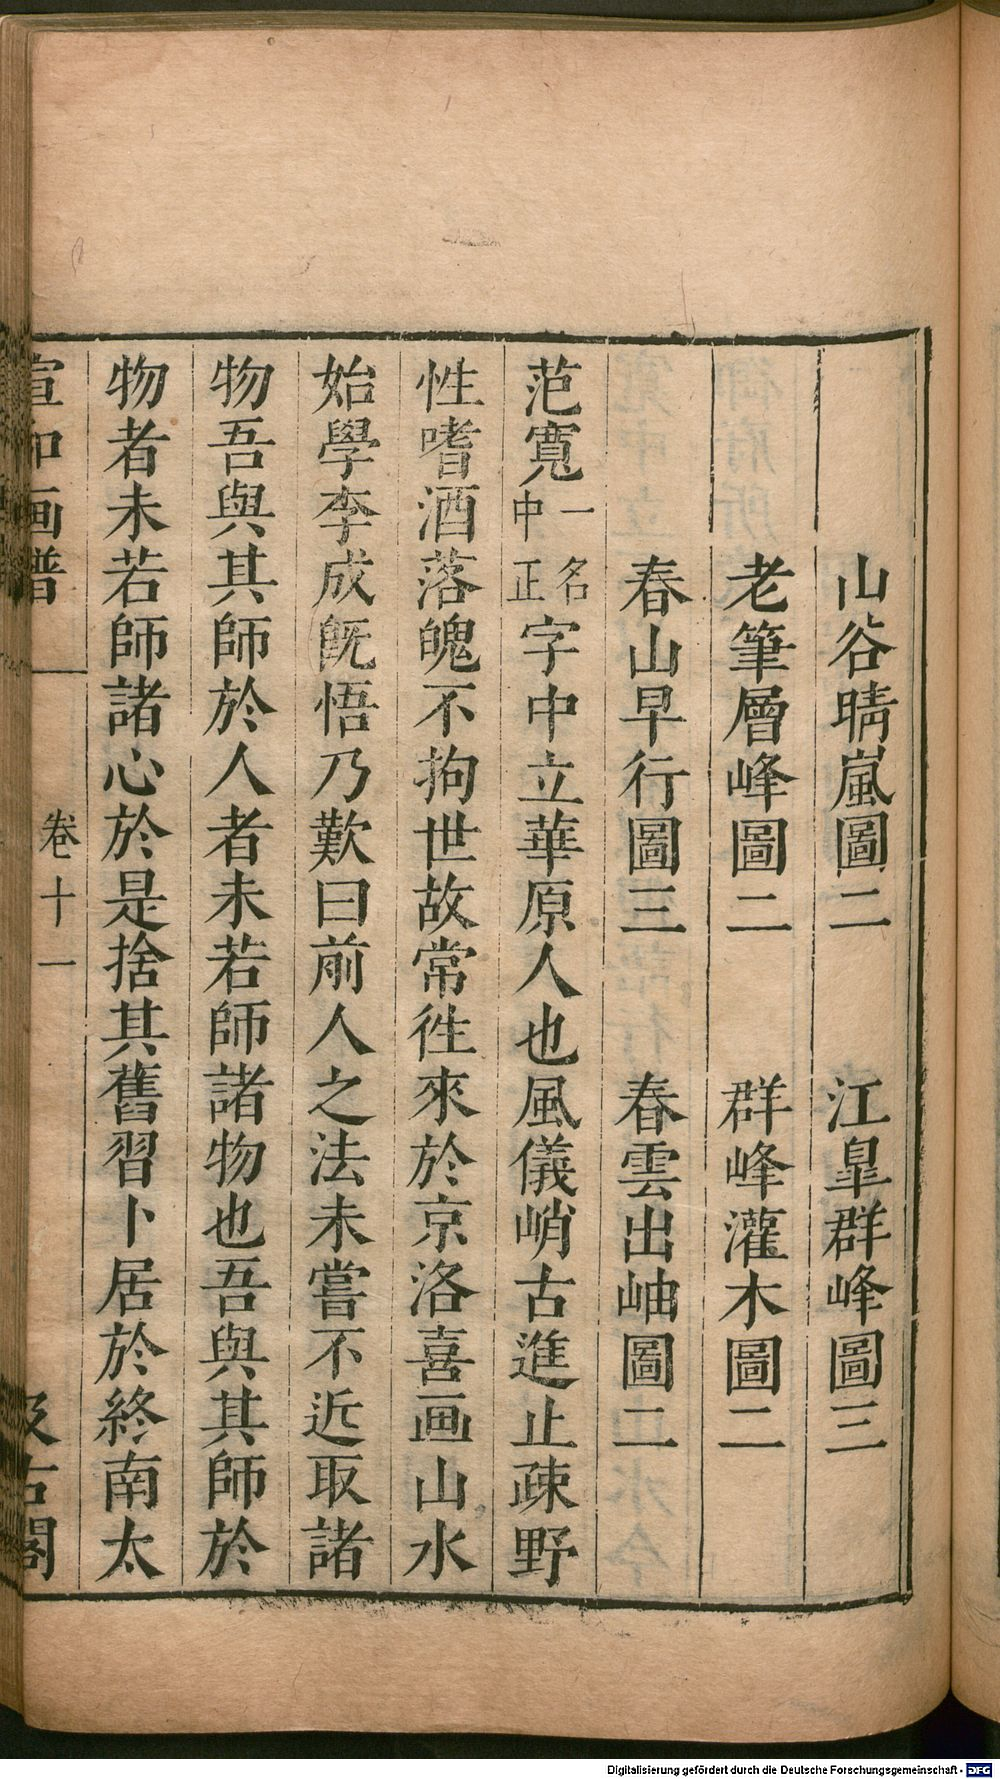 山谷晴嵐圖二　江臯群峰圖三
老筆層峰圖二　群峰灌木圖二
春山早行圖三　春雲出岫圖二
范寬一名中正字中立華原人也風儀峭古進止疎野
性嗜酒落魄不拘世故常徃來於京洛喜画山水
始學李成旣悟乃歎曰前人之法未嘗不近取諸
物吾與其師於人者未若師諸物也吾與其師於
物者未若師諸心於是捨其舊習卜居於終南太
宣和画譜　卷十一　汲古閣
Digitalisierung gefördert durch die Deutsche Forschungsgemeinschaft - DFG